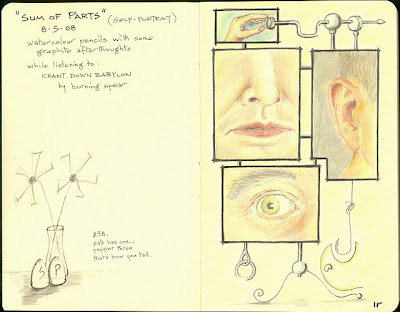 "SUM OF PARTS" (SELF-PORTRAIT)
8-5-08
watercolour pencils with some
graphite afterthoughts
while listening to:
CHANT DOWN BABYLON
by burning spear
#38.
salt has one...
pepper three
that's how you tell.
S P